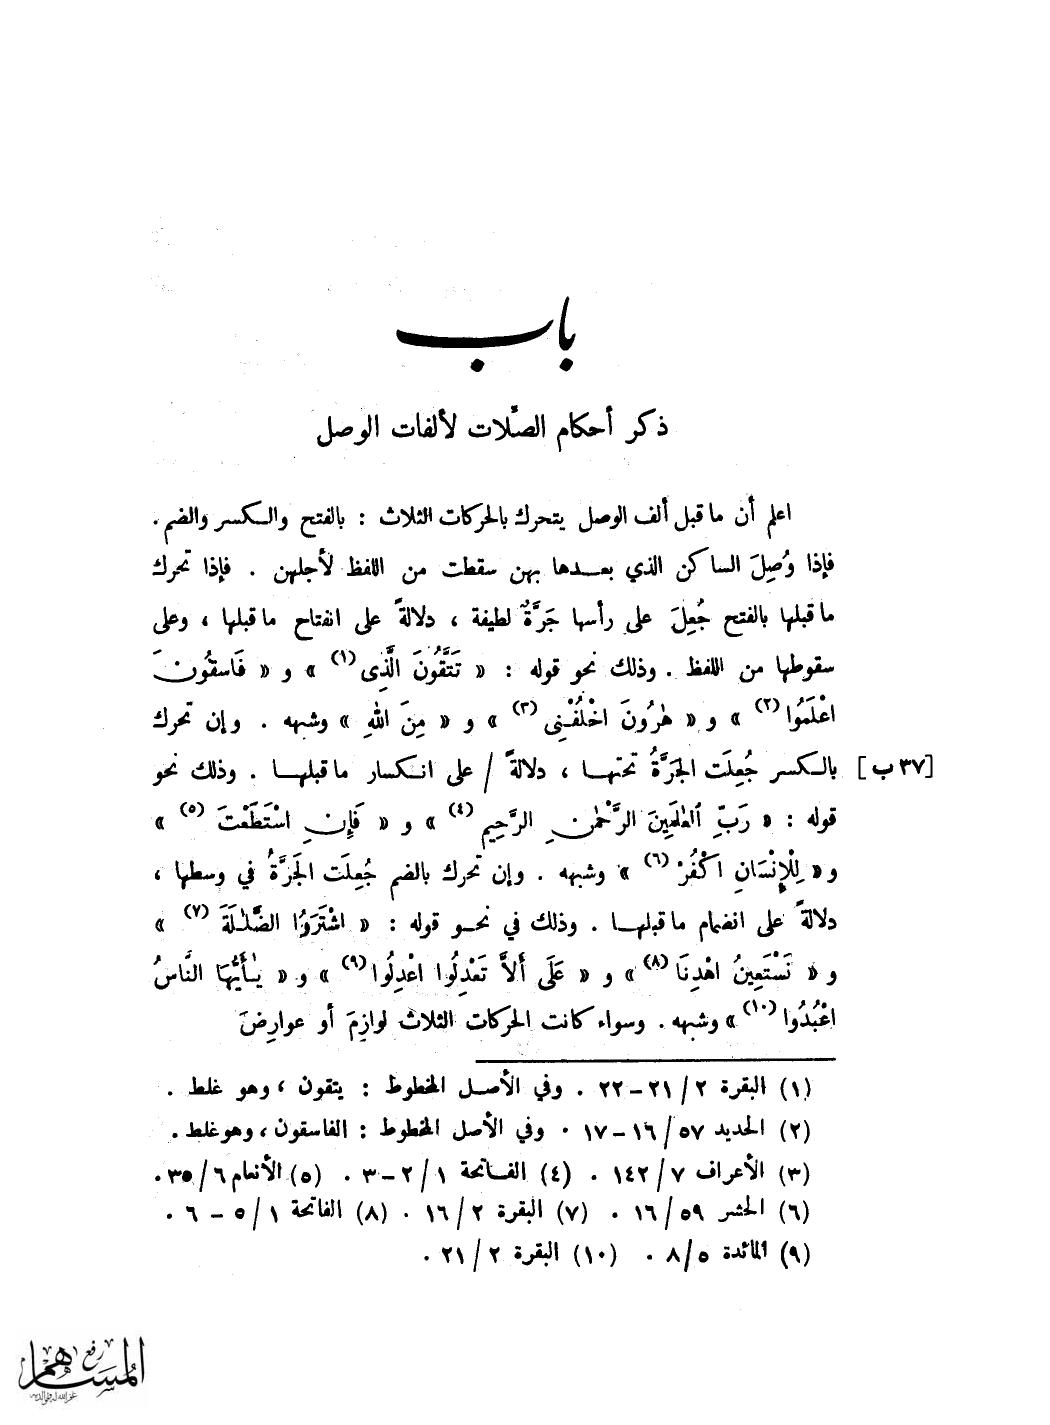 باب
ذكر أحكام الصّلات لألفات الوصل
اعلم أن ما قبل ألف الوصل يتحرك بالحركات الثلاث : بالفتح والكسر والضم .
فإذا وُصِلَ الساكن الذي بعدها بهن سقطت من اللفظ لأجلهن . فإذا تحرك
ما قبلها بالفتح جُعِلَ على رأسها جَرَّةٌ لطيفة ، دلالةً على انفتاح ما قبلها ، وعلى
سقوطها من اللفظ . وذلك نحو قوله : « تَتَّقُونَ الَّذِى (١) » و « فَاسقُونَ
اعْلَمُوا (٢) » و « هٰرُونَ اخْلُفْنِى (٣) » و « مِنَ اللهِ » وشبهه . وإن تحرك
بالكسر جُعِلَت الجَرَّةُ تحتها ، دلالةً / على انكسار ما قبلها . وذلك نحو [٣٧ ب]
قوله : « رَبِّ العٰلَمِينَ الرَّحْمٰنِ الرَّحِيمِ (٤) » و « فَإِنِ اسْتَطَعْتَ (٥) »
و « لِلْإِنْسَانِ اكْفُرْ (٦) » وشبهه . وإن تحرك بالضم جُعِلَت الجَرَّةُ في وسطها ،
دلالةً على انضمام ما قبلها . وذلك في نحو قوله : « اشْتَرَوُا الضَّلٰلَةَ (٧) »
و « نَسْتَعِينُ اهْدِنَا (٨) » و « عَلَى أَلاَّ تَعْدِلُوا اعْدِلُوا (٩) » و « يٰأَيُّهَا النَّاسُ
اعْبُدُوا (١٠) » وشبهه . وسواء كانت الحركات الثلاث لوازِمَ أو عوارِضَ
(١) البقرة ٢ / ٢١ – ٢٢ . وفي الأصل المخطوط : يتقون ، وهو غلط .
(٢) الحديد ٥٧ / ١٦ – ١٧ . وفي الأصل المخطوط : الفاسقون ، وهو غلط .
(٣) الأعراف ٧ / ١٤٢ . (٤) الفاتحة ١ / ٢ – ٣ . (٥) الأنعام ٦ / ٣٥ .
(٦) الحشر ٥٩ / ١٦ . (٧) البقرة ٢ / ١٦ . (٨) الفاتحة ١ / ٥ – ٦ .
(٩) المائدة ٥ / ٨ . (١٠) البقرة ٢ / ٢١ .
رفع
المساهم
غفر الله له ولوالديه